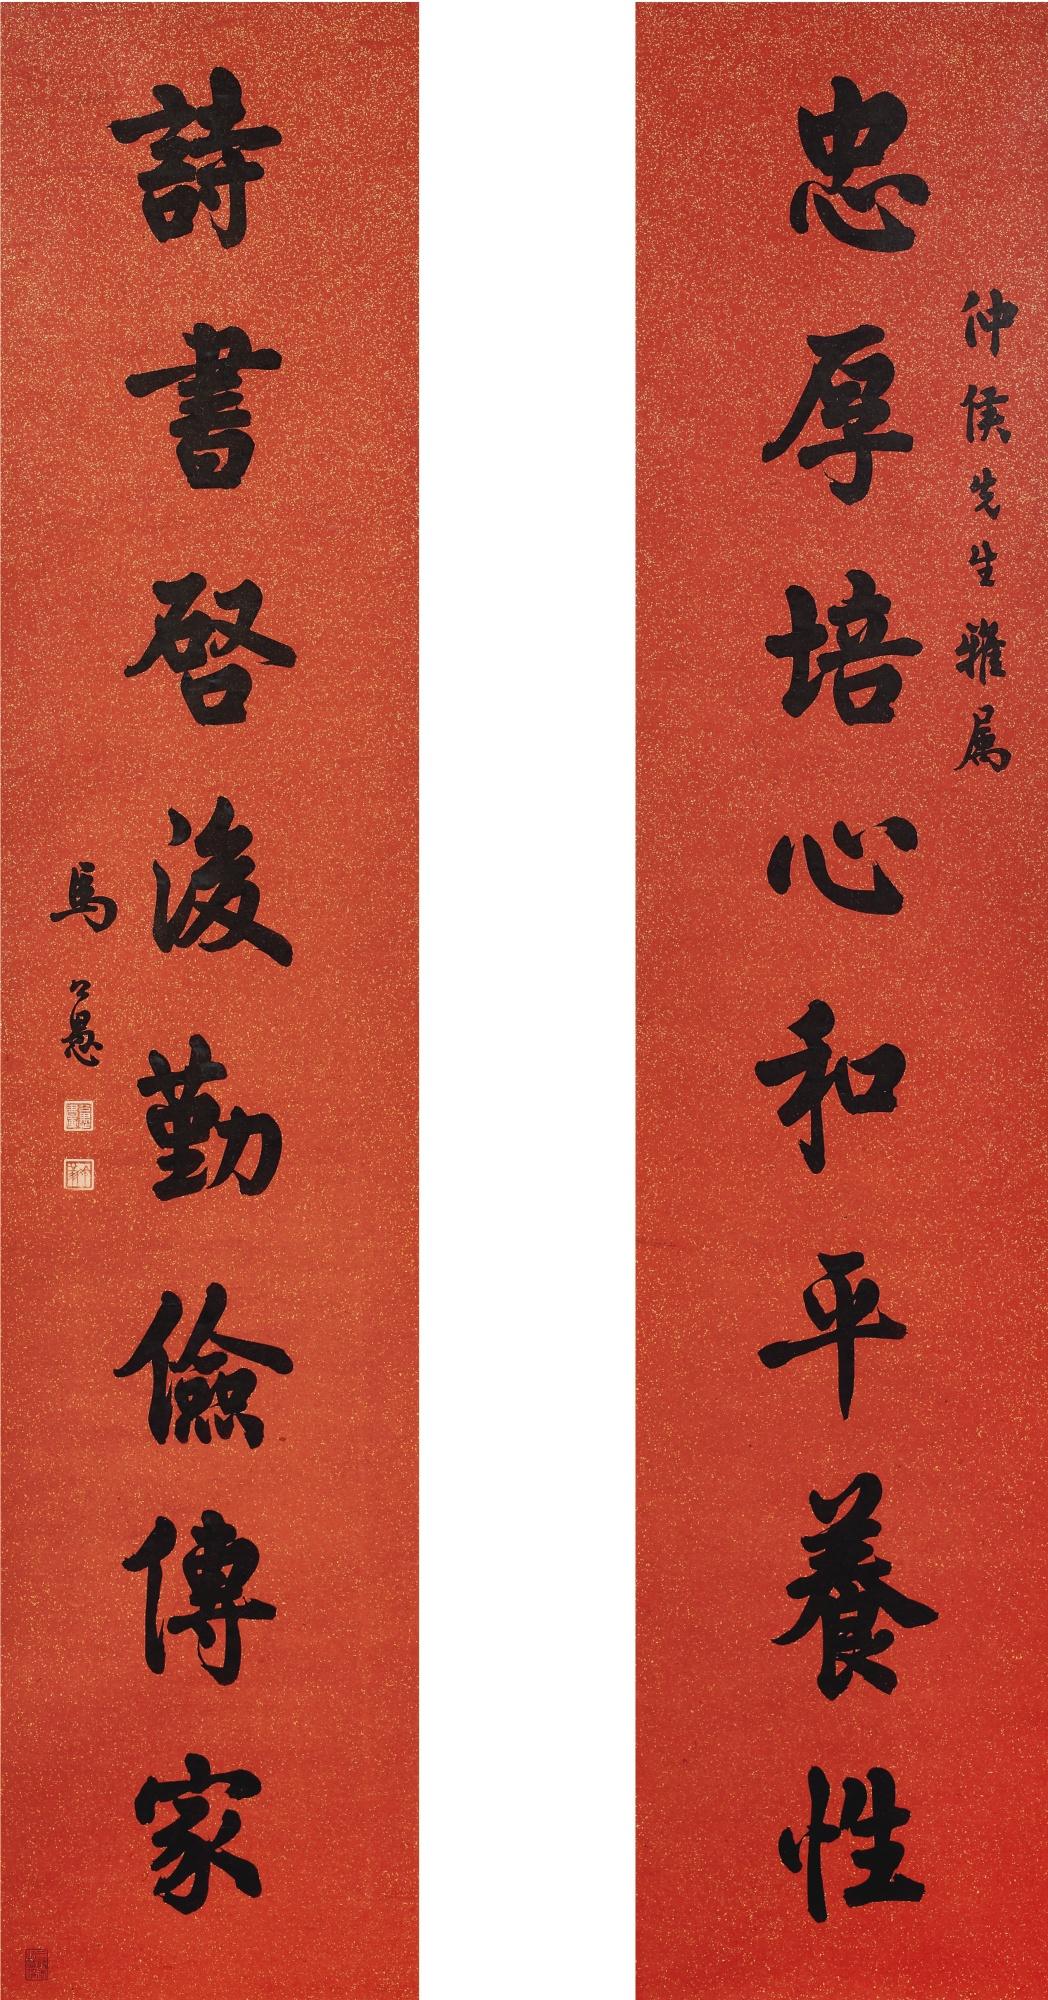 忠厚培心和平養性
仲侯先生雅属
詩書啓後勤儉傳家
馬公愚